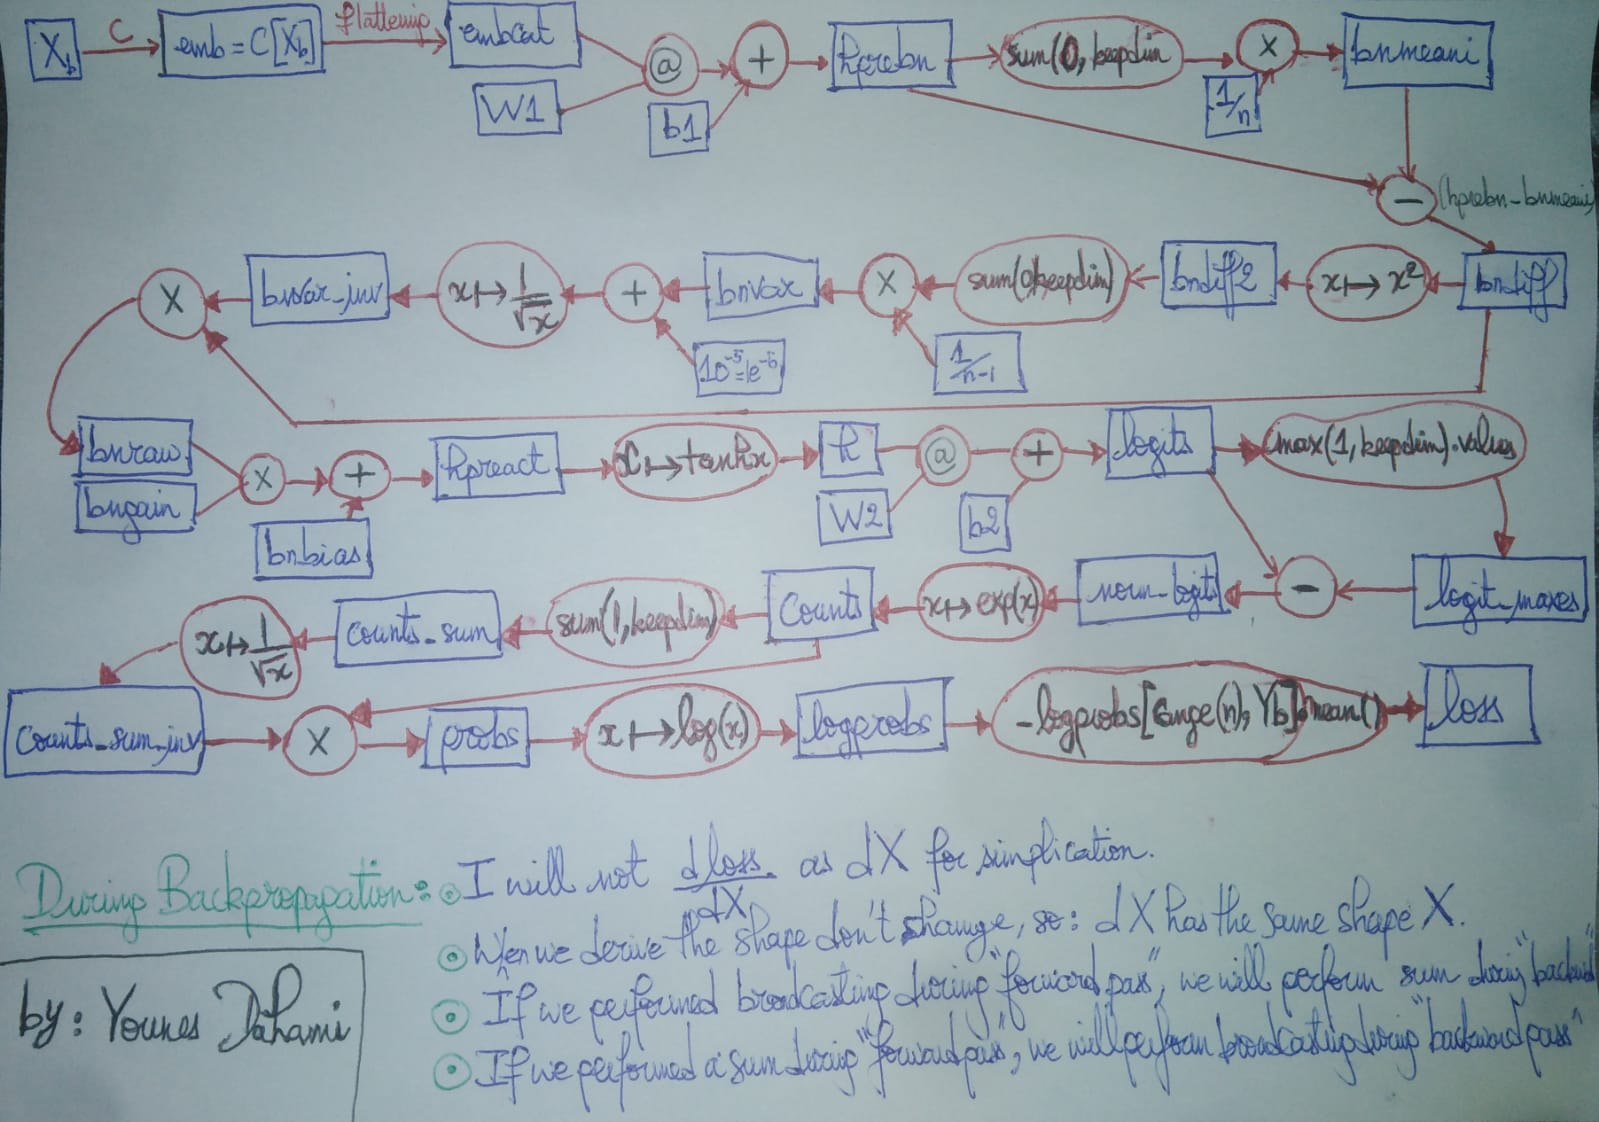 Xb C emb = C[Xb] flattening embcat @ + hprebn sum(0, keepdim × bnmeani
W1 b1 1/n
− (hprebn - bnmeani)
× bnvar_inv x↦1/√x + bnvar × sum(0,keepdim) bndiff2 x↦x² bndiff
10⁻⁵=1e⁻⁵ 1/n-1
bnraw × + hpreact x↦tanhx h @ + logits max(1,keepdim).values
bngain bnbias W2 b2
x↦1/√x counts_sum sum(1,keepdim) Counts x↦exp(x) norm_logits − logit_maxes
counts_sum_inv × probs x↦log(x) logprobs -logprobs[range(n), Yb].mean() loss
During Backpropagation: ⊙ I will not dloss/dX as dX for simplication.
⊙ When we derive the shape don't change, so: dX has the same shape X.
⊙ If we performed broadcasting during "forward pass", we will perform sum during "backward"
⊙ If we performed a sum during "forward pass", we will perform broadcasting during "backward pass"
by: Younes Dahami